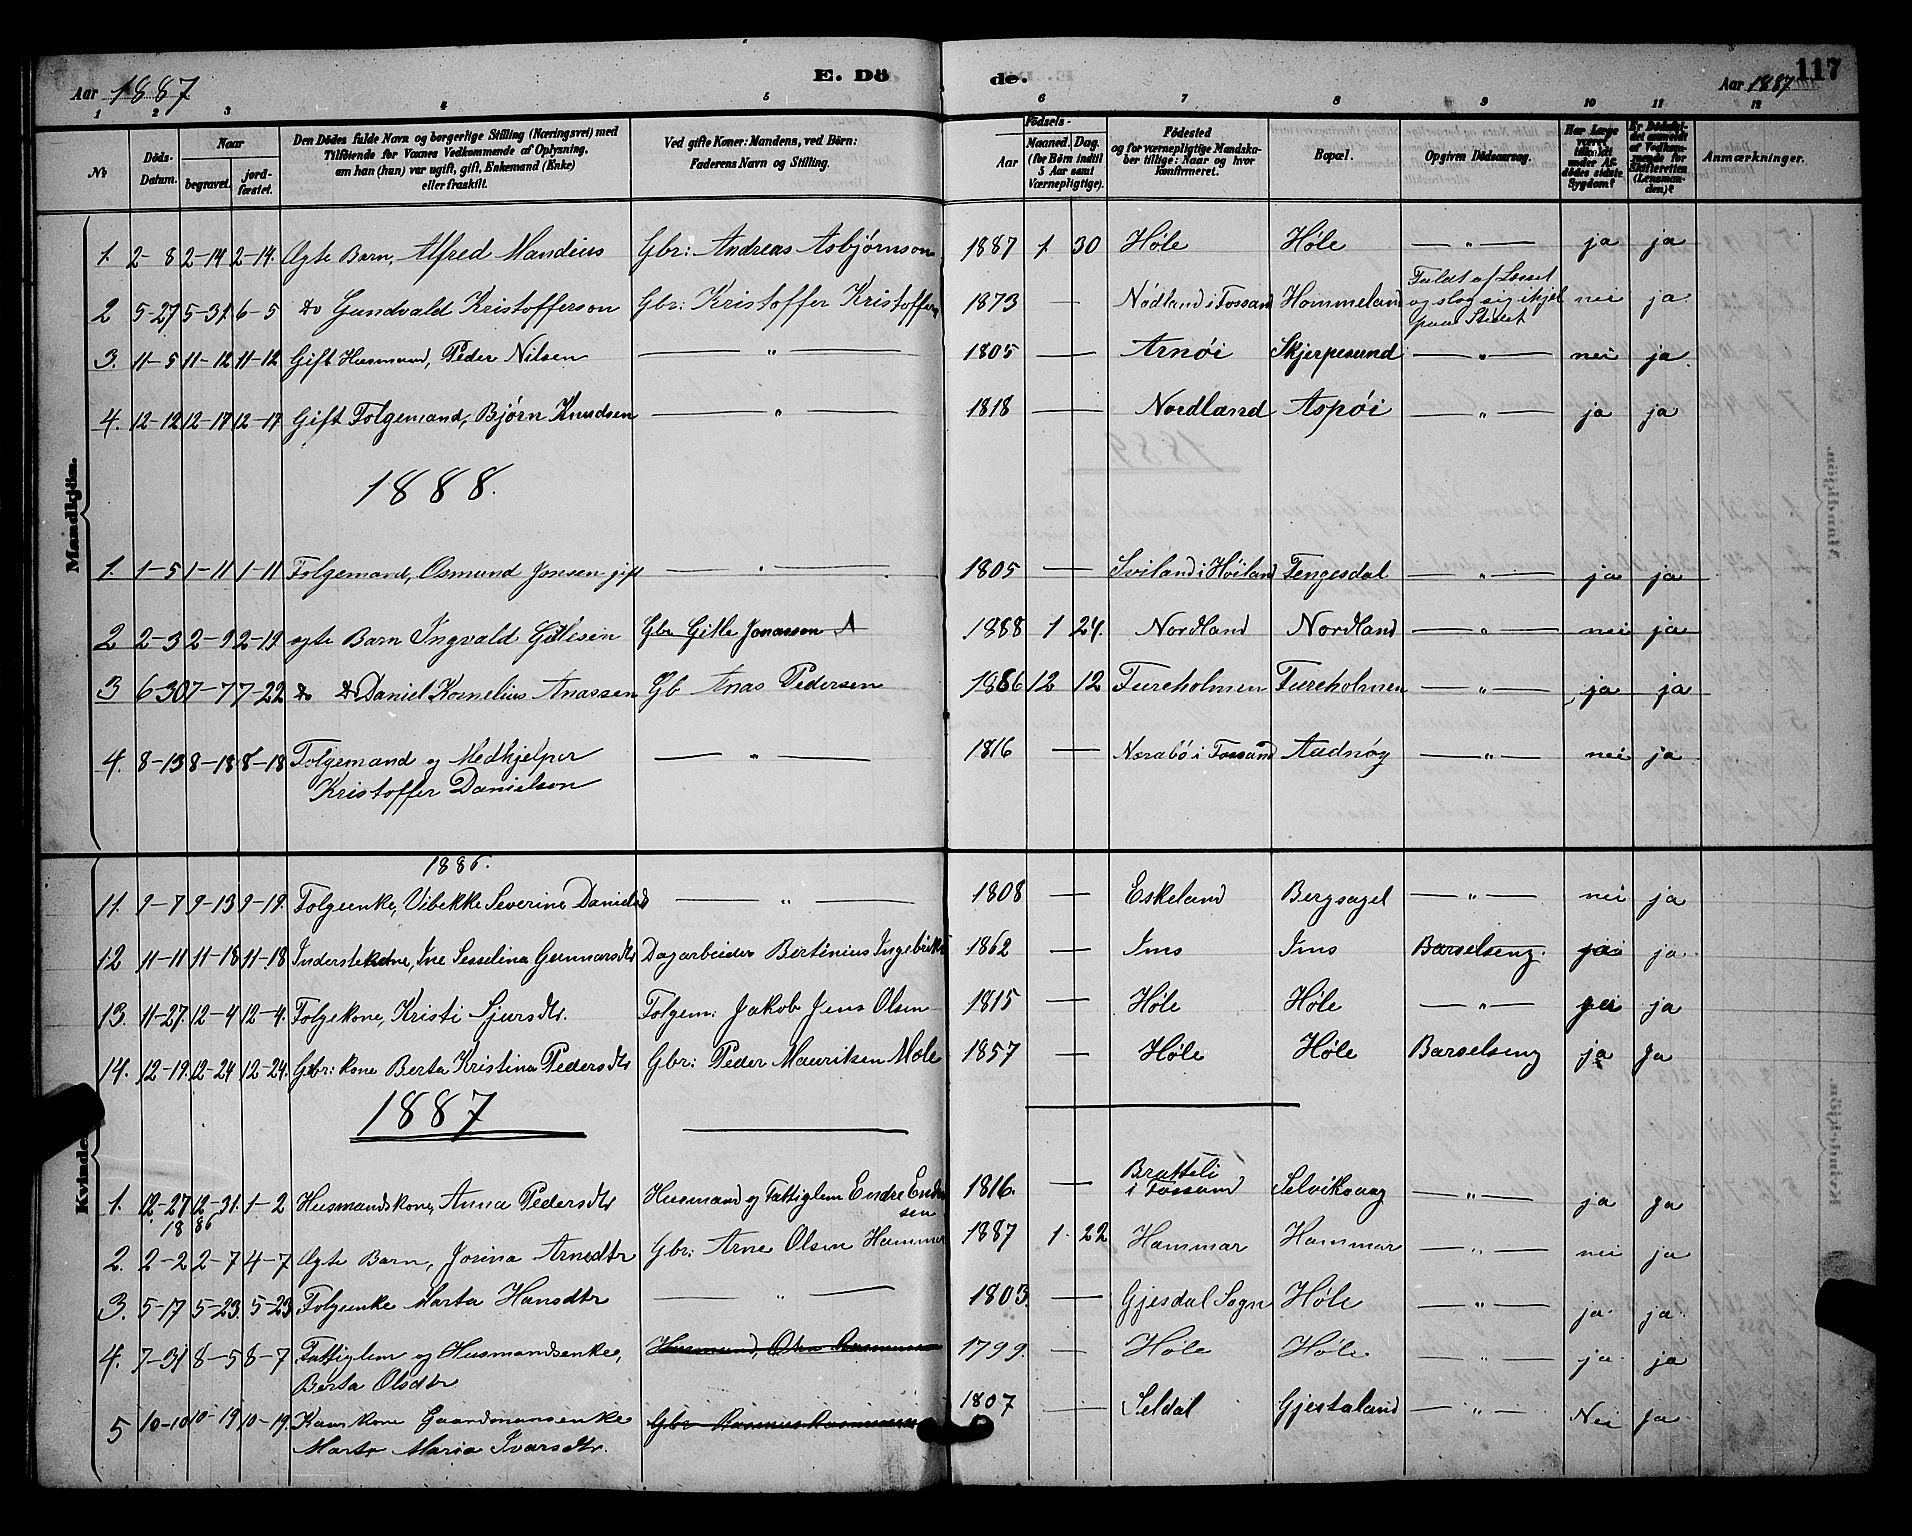 Aar 1887 E. Dö de. Aar 1887 117
1 2 3 4 5 6 7 8 9 10 11 12
No
Döds-Datum.
Naar begravet. jordfæstet.
Den Dödes fulde Navn og borgerlige Stilling (Næringsvei) med
Tilföiende for Voxnes Vedkommende af Oplysning,
om han (hun) var ugift, gift, Enkemand (Enke)
eller fraskilt.
Ved gifte Koner: Mandens, ved Börn:
Faderens Navn og Stilling.
Födsels-
Aar Maaned. Dag.
(for Börn indtil
5 Aar samt
Værnepligtige).
Födested
og for værnepligtige Mandska-
ber tillige: Naar og hvor
konfirmeret.
Bopæl.
Opgiven Dödsaarsag.
Har Læge
været
tilkaldt
under Af-
dödes sidste
Sygdom?
Er Dödsfal-
det anmeldt
af Vedkom-
mende for
Skifteretten
(Lensman-
den)?
Anmærkninger.
Mandkjön.
1. 2-8 2-14 2-14. Ægte Barn, Alfred Mandius Gbr: Andreas Asbjørnson 1887 1 30 Høle Høle — " — ja ja
2 5-27 5-31 6-5 Do Gundvald Kristofferson Gbr: Kristoffer Kristoffers 1873 — Nødland i Fossand Hommeland Faldt af Læsset og slog sig ihjel paa Stedet nei ja
3. 11-5 11-12 11-12 Gift Husmand, Peder Nilsen — " — 1805 — Arnøi Skjerpesund — " — nei ja
4. 12-12 12-17 12-17 Gift Folgemand, Bjørn Knudsen — " — 1818 — Nordland Aspøi — " — ja ja
1888.
1. 1-5 1-11 1-11 Folgemand, Osmund Jonsen gift — " — 1805 — Sviland i Høiland Fengesdal — " — ja ja
2 2-3 2-9 2-19. ægte Barn Ingvald Gitlesen Gbr Gitle Jonassen 1888 1 24. Nordland Nordland — " — nei ja
3 6-30 7-7 7-22 Do Do Daniel Kornelius Anassen Gb Anas Pedersen 1886 12 12 Fureholmen Fureholmen — " — ja ja
4. 8-13 8-18 8-18 Folgemand og Medhjelper — " — 1816 — Norabø i Fossand Aadnøy — " — nei ja
Kristoffer Danielson
Kvinde
1886.
11. 9-7 9-13 9-19. Folgeenke, Vibekke Severine Danielsd — " — 1808 — Eskeland Bergsagel — " — nei ja
12 11-11 11-18 11-18 Inderstekone, Ine Sesselina Gunnarsdtr Dagarbeider Bertinius Ingebrikts 1862 Ims Ims Barselseng. ja ja
13. 11-27. 12-4 12-4. Folgekone, Kristi Sjursdtr. Folgem: Jakob Jens Olsen 1815 — Høle Høle — " — ja
14. 12-19. 12-24 12-24. Gbr: kone Berta Kristina Pedersdtr Gbr: Peder Mauritsen Høle 1857 — Høle Høle Barselseng ja Ja
1887
1. 12-27 12-31. 1-2 Husmandskone, Anna Pedersdtr Husmand og Fattiglem Endre Endresen 1816. — Bratteli i Fossand Selvikvaag — " — ja Ja
1886
2. 2-2 2-7 4-7 Ægte Barn, Jorina Arnedtr Gbr: Arne Olsen Hammer 1887 1. 22 Hammar Hammar — " — nei ja
3. 5-17 5-23. 5-23 Folgeenke Marta Hansdtr — " — 1803. — Gjesdal Sogn Høle — " — ja. ja.
4. 7-31 8-5 8-7 Fattiglem og Husmandsenke, Husmand, 1799. — Høle Høle — " — ja. ja
Berta Olsdtr
5 10-10 10-19 10-19. Gaardmansenke Gbr: Rasmus Rasmussen 1807 — Seldal Gjestaland — " — Nei Ja
Marta Maria Ivarsdtr.